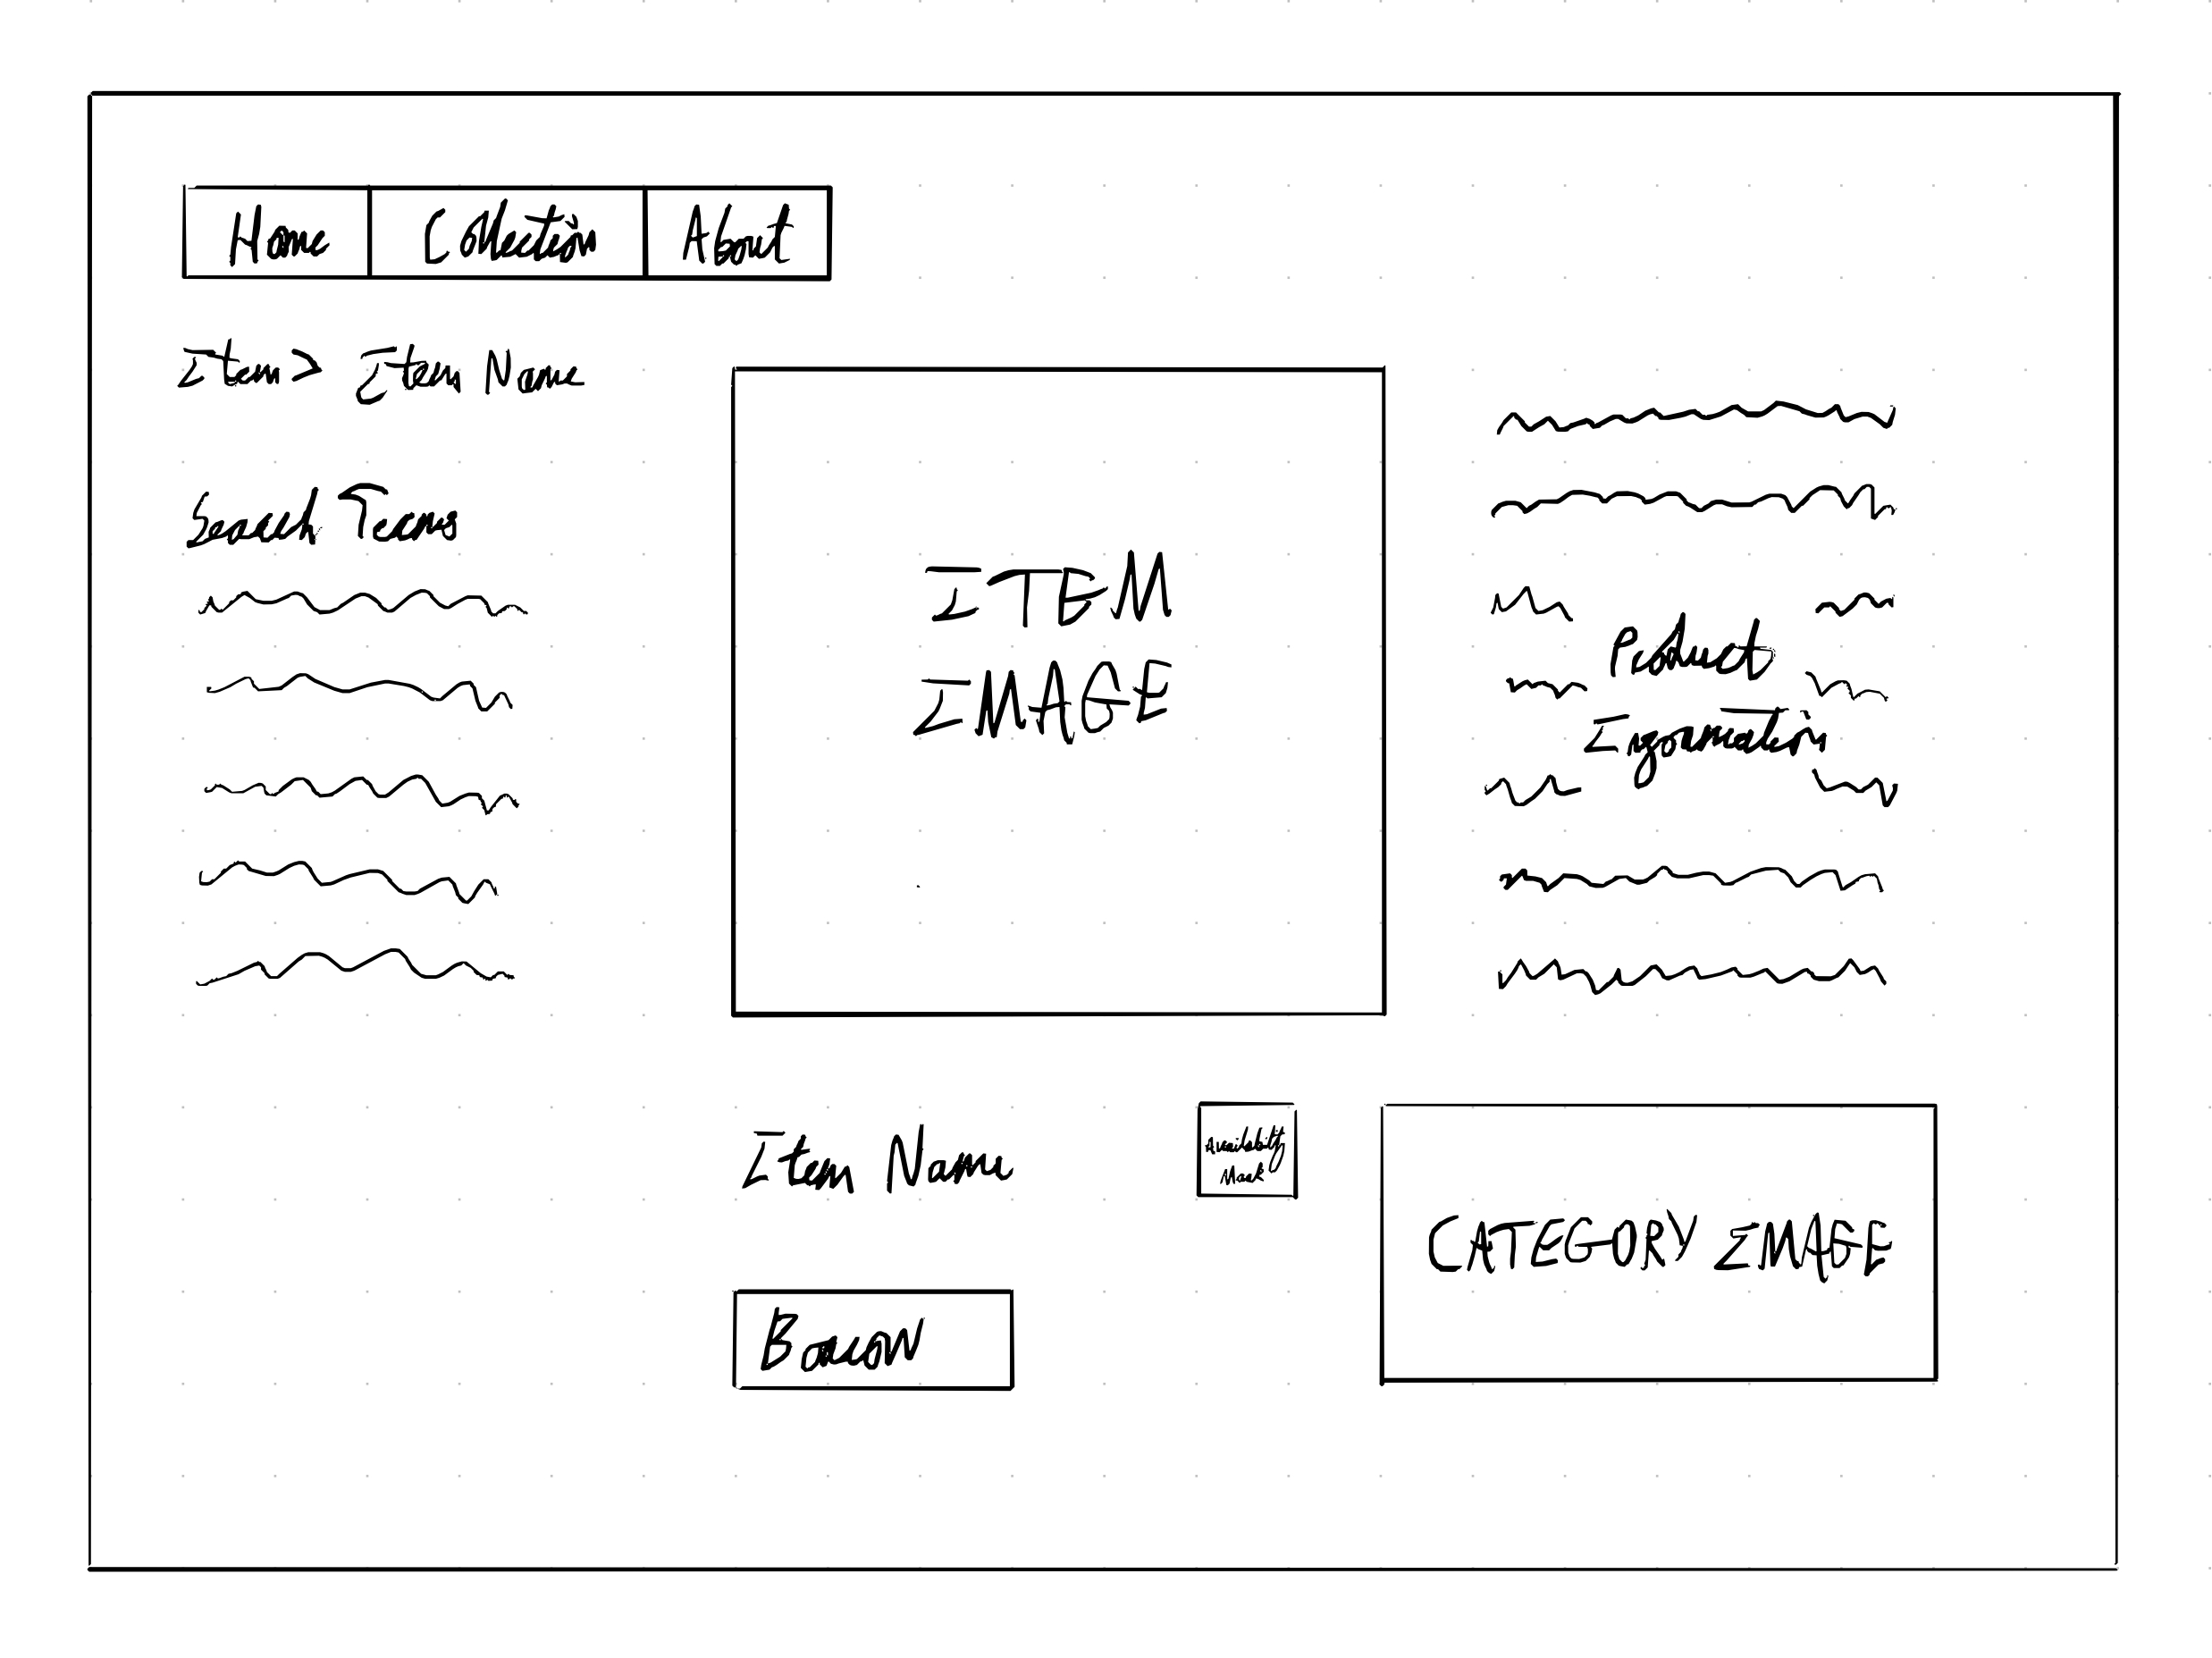 Home Collection About
Item > Item Name
Search Terms
ITEM
IMAGE
Product
Information
Item Name
Availability
Mark
CATEGORY IMAGE
Borrow